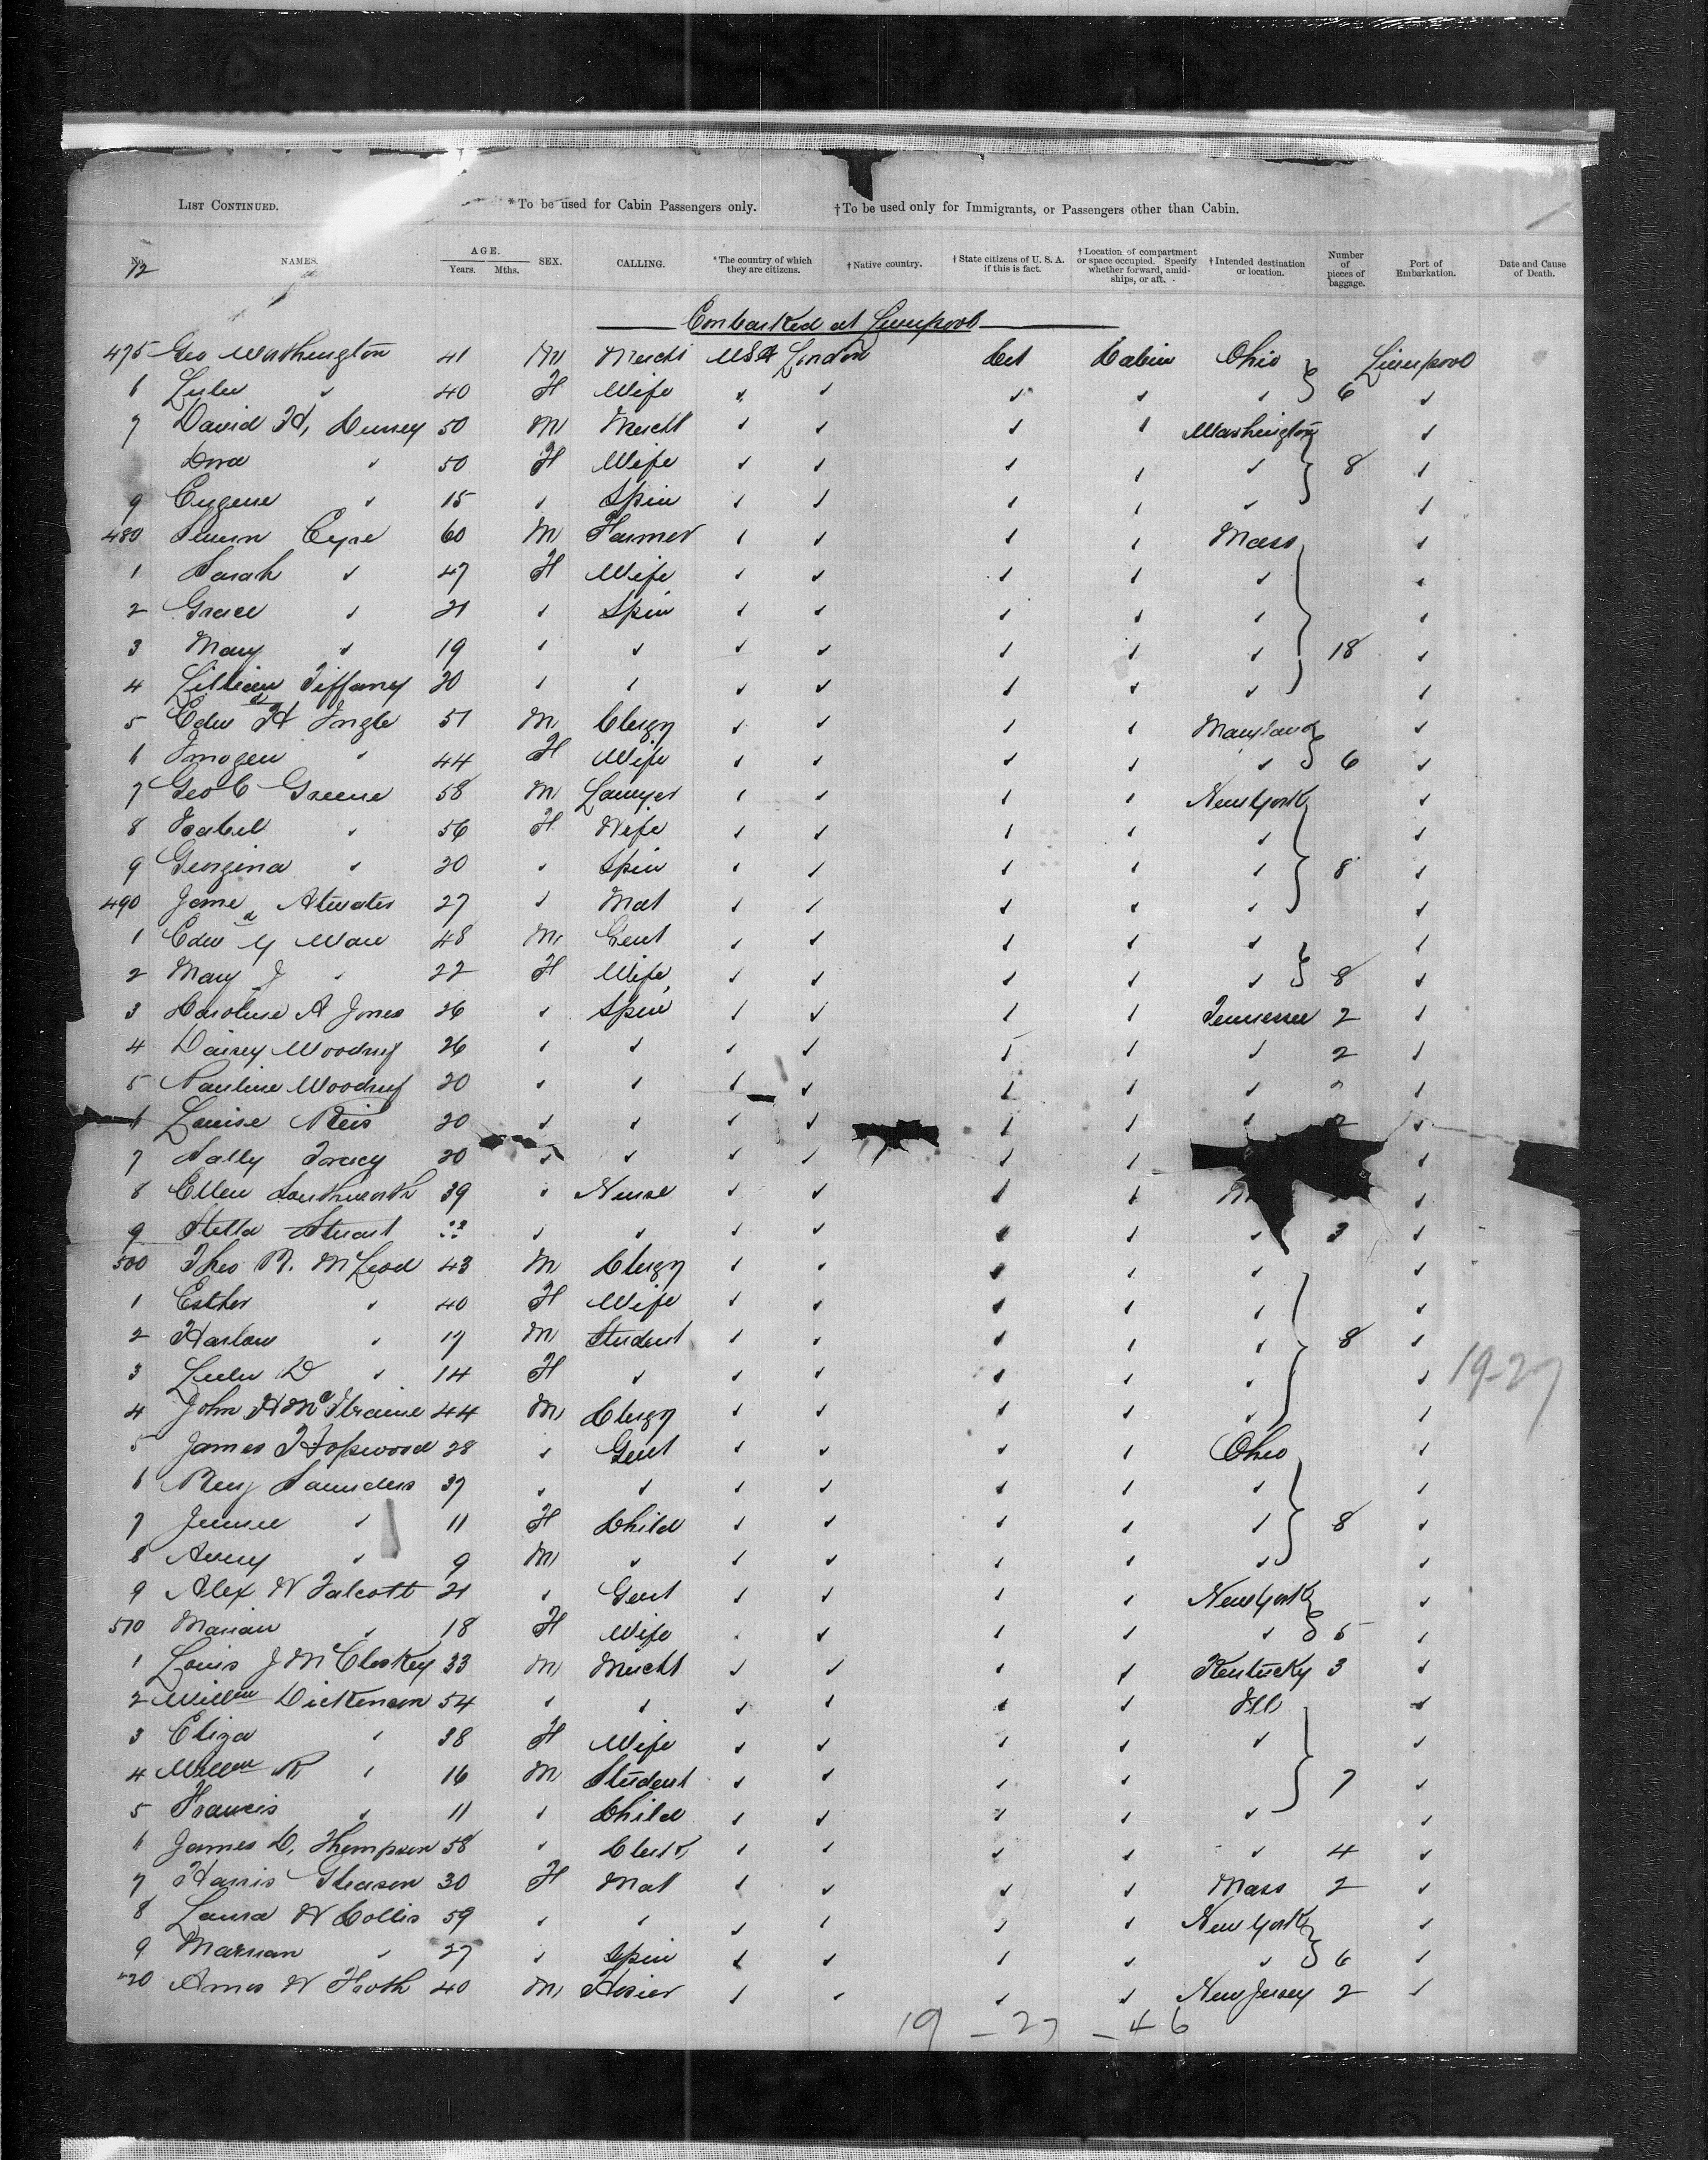 LIST CONTINUED. *To be used for Cabin Passengers only. †To be used only for Immigrants, or Passengers other than Cabin.
No. NAMES. AGE. Years. Mths. SEX. CALLING. *The country of which they are citizens. †Native country. †State citizens of U. S. A. if this is fact. †Location of compartment or space occupied. Specify whether forward, amidships, or aft. †Intended destination or location. Number of pieces of baggage. Port of Embarkation. Date and Cause of Death.
12
Embarked at Liverpool
475 Geo Washington 41 M Mercht USA London Cit Cabin Ohio Liverpool
6 Lulu ✓ 40 F Wife ✓ ✓ ✓ ✓ ✓ 6 ✓
7 David H, 50 M Mercht ✓ ✓ ✓ ✓ Washington ✓
✓ 50 F Wife ✓ ✓ ✓ ✓ ✓ 8 ✓
9 Eugene ✓ 15 ✓ Spin ✓ ✓ ✓ ✓ ✓ ✓
480 Eyre 60 M Farmer ✓ ✓ ✓ ✓ Mass ✓
1 Sarah ✓ 47 F Wife ✓ ✓ ✓ ✓ ✓ ✓
2 Grace ✓ 21 ✓ Spin ✓ ✓ ✓ ✓ ✓ ✓
3 Mary ✓ 19 ✓ ✓ ✓ ✓ ✓ ✓ ✓ 18 ✓
4 Lillian Tiffany 20 ✓ ✓ ✓ ✓ ✓ ✓ ✓ ✓
5 Edwd H Ingle 51 M Clergy ✓ ✓ ✓ ✓ Maryland ✓
6 Imogen ✓ 44 F Wife ✓ ✓ ✓ ✓ ✓ 6 ✓
7 Geo C Greene 58 M Lawyer ✓ ✓ ✓ ✓ New York ✓
8 Isabel ✓ 56 F Wife ✓ ✓ ✓ ✓ ✓ ✓
9 Georgina ✓ 20 ✓ Spin ✓ ✓ ✓ ✓ ✓ 8 ✓
490 Jane Atwater 27 ✓ Mat ✓ ✓ ✓ ✓ ✓ ✓
1 Edwd Y Ware 48 M Gent ✓ ✓ ✓ ✓ ✓ ✓
2 Mary J ✓ 22 F Wife ✓ ✓ ✓ ✓ ✓ 8 ✓
3 Caroline A Jones 26 ✓ Spin ✓ ✓ ✓ ✓ Tennessee 2 ✓
4 Daisey Woodruf 26 ✓ ✓ ✓ ✓ ✓ ✓ ✓ 2 ✓
5 Pauline Woodruf 20 ✓ ✓ ✓ ✓ ✓ ✓ ✓ ✓
6 Louise Reis 20 ✓ ✓ ✓ ✓ ✓ ✓ ✓ 2 ✓
7 Sally Tracy 20 ✓ ✓ ✓ ✓ ✓ ✓ ✓
8 Ellen Southworth 39 ✓ Nurse ✓ ✓ ✓ ✓ ✓
9 Stella Stuart ✓ ✓ ✓ ✓ ✓ ✓ ✓ 3 ✓
500 Theo R. McLeod 43 M Clergy ✓ ✓ ✓ ✓ ✓ ✓
1 Esther ✓ 40 F Wife ✓ ✓ ✓ ✓ ✓ ✓
2 Harlow ✓ 17 M Student ✓ ✓ ✓ ✓ ✓ 8 ✓
3 Lulu D ✓ 14 F ✓ ✓ ✓ ✓ ✓ ✓ ✓ 19-27
4 John H McIlvaine 44 M Clergy ✓ ✓ ✓ ✓ ✓ ✓
5 James Hopwood 28 ✓ Gent ✓ ✓ ✓ ✓ Ohio ✓
6 Benj Saunders 37 ✓ ✓ ✓ ✓ ✓ ✓ ✓ ✓
7 ✓ 11 F Child ✓ ✓ ✓ ✓ ✓ 8 ✓
8 Avery ✓ 9 M ✓ ✓ ✓ ✓ ✓ ✓ ✓
9 Alex W Talcott 21 ✓ Gent ✓ ✓ ✓ ✓ New York ✓
510 Marian ✓ 18 F Wife ✓ ✓ ✓ ✓ ✓ 5 ✓
1 Louis J McCloskey 33 M Mercht ✓ ✓ ✓ ✓ Kentucky 3 ✓
2 Willm Dickenson 54 ✓ ✓ ✓ ✓ ✓ ✓ Ills ✓
3 Eliza ✓ 38 F Wife ✓ ✓ ✓ ✓ ✓ ✓
4 Willm R ✓ 16 M Student ✓ ✓ ✓ ✓ 7 ✓
5 Francis ✓ 11 ✓ Child ✓ ✓ ✓ ✓ ✓ ✓
6 James C. Thompson 58 ✓ Clerk ✓ ✓ ✓ ✓ ✓ 4 ✓
7 Harris Gleason 30 F Mat ✓ ✓ ✓ ✓ Mass 2 ✓
8 Laura W Collis 59 ✓ ✓ ✓ ✓ ✓ ✓ New York ✓
9 Marian ✓ 27 ✓ Spin ✓ ✓ ✓ ✓ ✓ 6 ✓
520 Amos W 40 M Hosier ✓ ✓ ✓ ✓ New Jersey 2 ✓
19 - 27 - 46